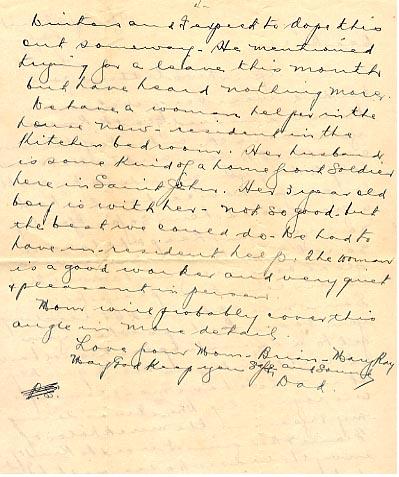 and I expect to dope this
out someway - He mentioned
trying for a leave this month
but have heard nothing more.
We have a woman helper in the
house now - resident in the
Kitchen bedroom. Her husband
is some kind of a home front soldier
here in Saint John. Her 3 year old
boy is with her - not so good - but
the best we could do - We had to
have in-resident help. The woman
is a good worker and very quet
& pleasant in person.
Mom will probably cover this
angle in more detail.
Love from Mom - Brian - Mary Kay
May God keep you safe and sound
Dad.